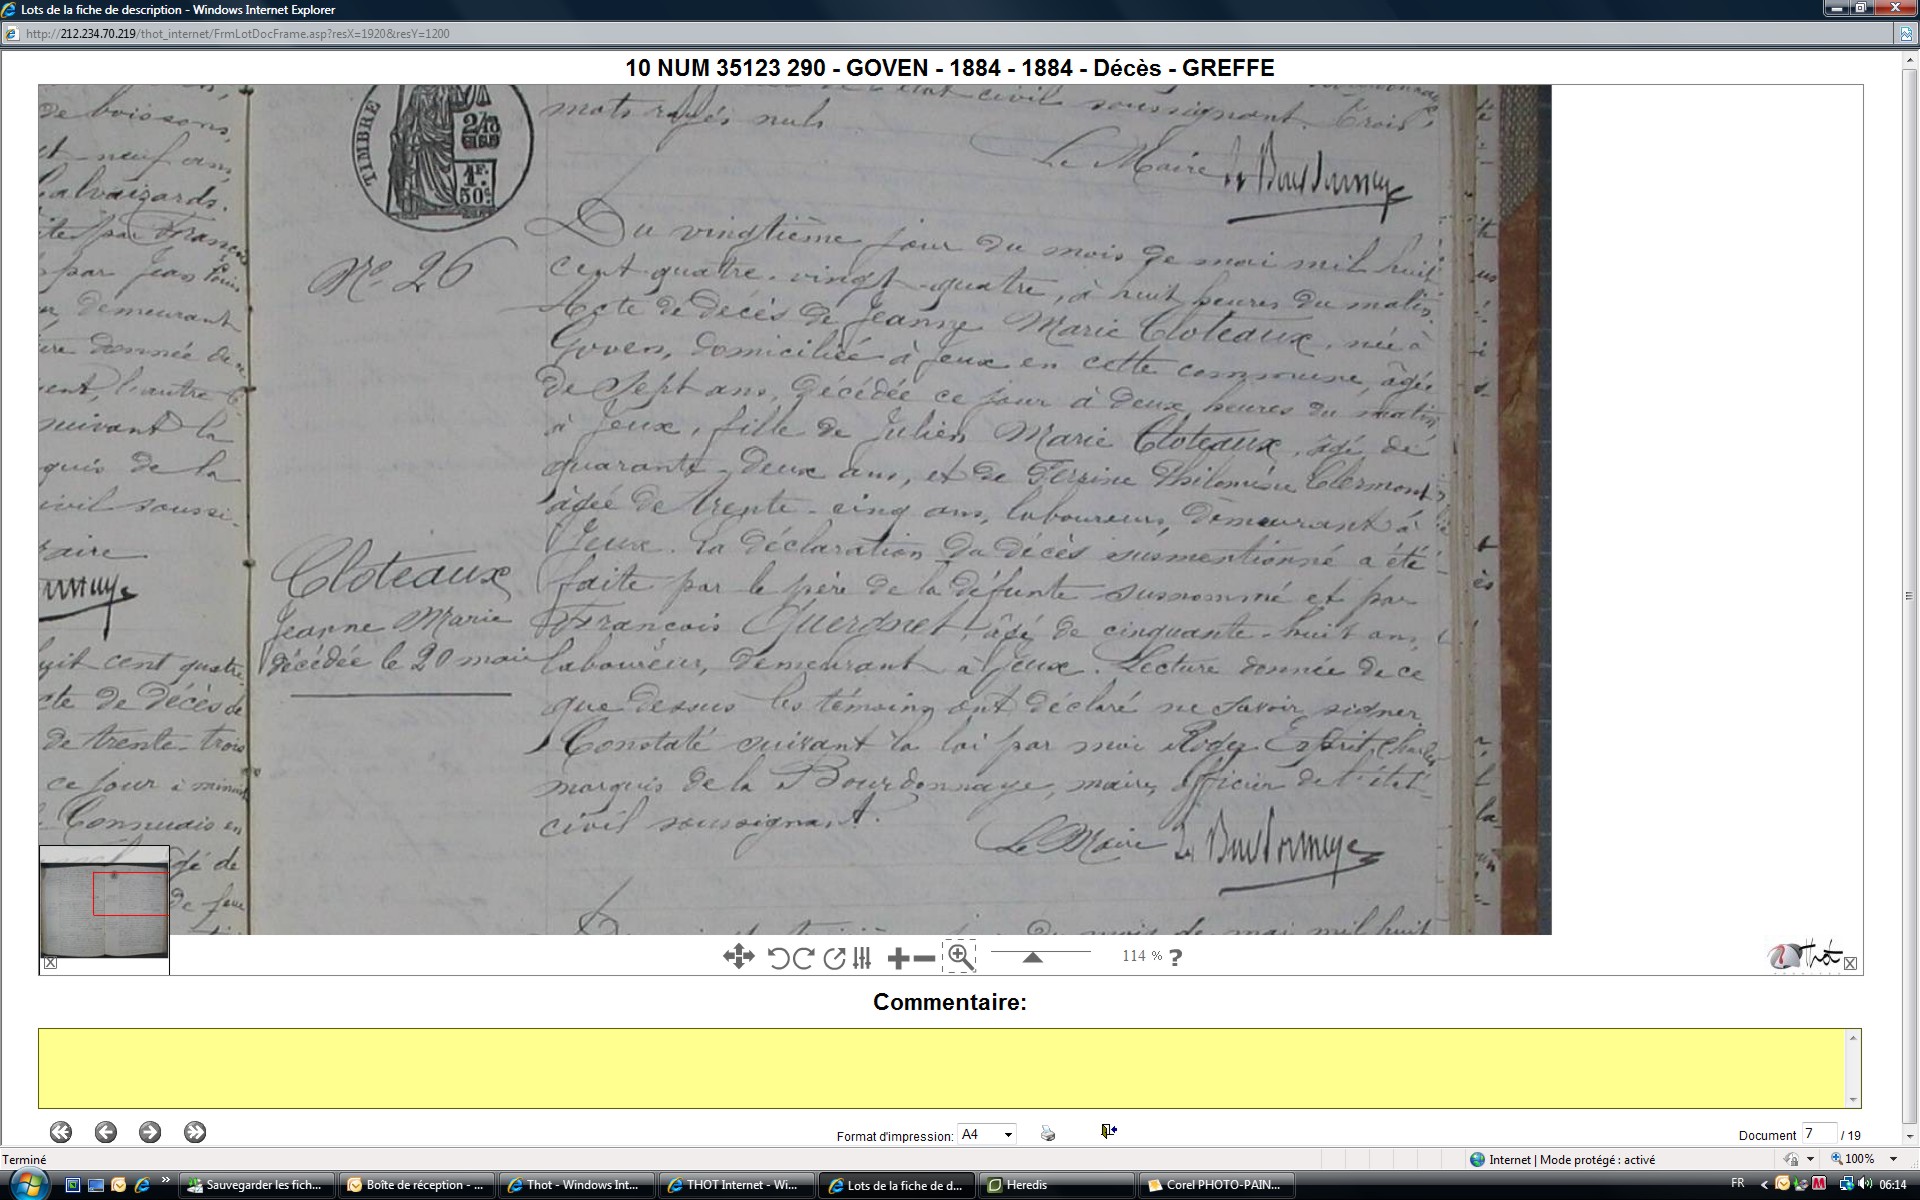 Lots de la fiche de description - Windows Internet Explorer
http://212.234.70.219/thot_internet/FrmLotDocFrame.asp?resX=1920&resY=1200
10 NUM 35123 290 - GOVEN - 1884 - 1884 - Décès - GREFFE
de boissons,
et neuf ans,
Calvaizards.
par Jean Louis
demeurant
donnée de
l'autre
suivant la
quis de la
civil soussi-
maire
huit cent quatre
acte de décès de
de trente-trois
ce jour à minuit
Connuais en
âgé de
TIMBRE
2/10
1F.
50c
No. 26
Cloteaux
Jeanne Marie
décédée le 20 mai
l'état civil soussignant. Trois
mots rayés nuls
Le Maire
Du vingtième jour du mois de mai mil huit
cent quatre-vingt-quatre, à huit heures du matin.
Acte de décès de Jeanne Marie Cloteaux, née à
Goven, domiciliée à Jeux en cette commune, âgée
de Sept ans, décédée ce jour à deux heures du matin
à Jeux, fille de Julien Marie Cloteaux, âgé de
quarante-deux ans, et de Perrine Philomène Clermont,
âgée de trente-cinq ans, laboureurs, demeurant à
Jeux. La déclaration du décès susmentionné a été
faite par le père de la défunte susnommé et par
François Guerdnet, âgé de cinquante-huit ans,
laboureur, demeurant à Jeux. Lecture donnée de ce
que dessus les témoins ont déclaré ne savoir signer.
Constaté suivant la loi par moi Roger Esprit Charles
marquis de la Bourdonnaye, maire, officier de l'état-
civil soussignant.
Le Maire
du mois de mai mil huit
114 % ?
Thot
Commentaire:
Format d'impression: A4
Document 7 / 19
Terminé
Internet | Mode protégé : activé
100%
Sauvegarder les fich...
Boîte de réception - ...
Thot - Windows Int...
THOT Internet - Wi...
Lots de la fiche de d...
Heredis
Corel PHOTO-PAIN...
FR
06:14